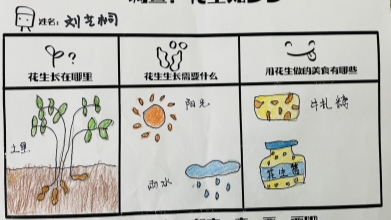 姓名：刘艺桐
花生长在哪里
花生生长需要什么
用花生做的美食有哪些
土里
阳光
雨水
牛轧糖
花生酱